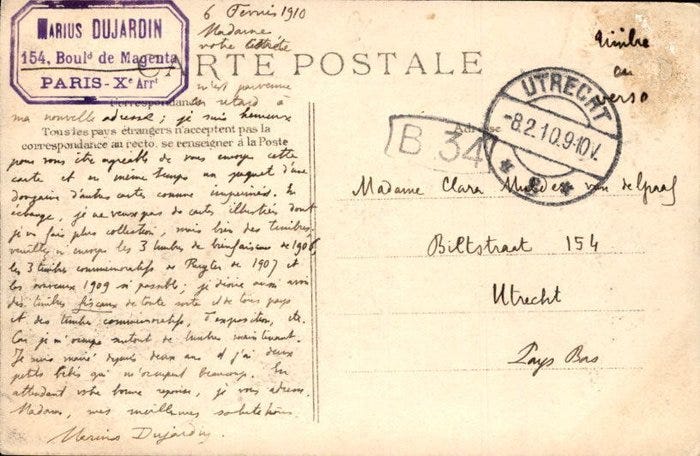 MARIUS DUJARDIN
154, Boul.d de Magenta
PARIS-X.e Arr.t
6 Fevrier 1910
Madame
votre
CARTE POSTALE
n'est parvenue
Correspondance
en retard à
ma nouvelle adresse; je suis heureux
Tous les pays étrangers n'acceptent pas la
correspondance au recto. se renseigner à la Poste
pour vous être agréable de vous envoyer cette
carte et en même temps un paquet d'une
douzaine d'autres cartes comme imprimés. En
échange, je ne veux pas de cartes illustrées dont
je ne fais plus collection, mais bien des timbres.
veuillez m'envoyer les 3 timbres de bienfaisance de 1906,
les 3 timbres commemoratifs de Ruyter de 1907 et
les nouveaux 1909 si possible; je désire aussi avoir
des timbres fiscaux de toute sorte et de tous pays
et des timbres commemoratifs, d'exposition, etc.
Car je m'occupe surtout de timbres maintenant.
Je suis marié depuis deux ans et j'ai deux
petits bébés qui m'occupent beaucoup. En
attendant votre bonne reponse, je vous adresse,
Madame, mes meilleures salutations.
Marius Dujardin
timbre
au
verso
UTRECHT
-8.2.10.9-10V.
B 34
Adresse
Madame Clara Mulder van de Graaf
Biltstraat 154
Utrecht
Pays Bas